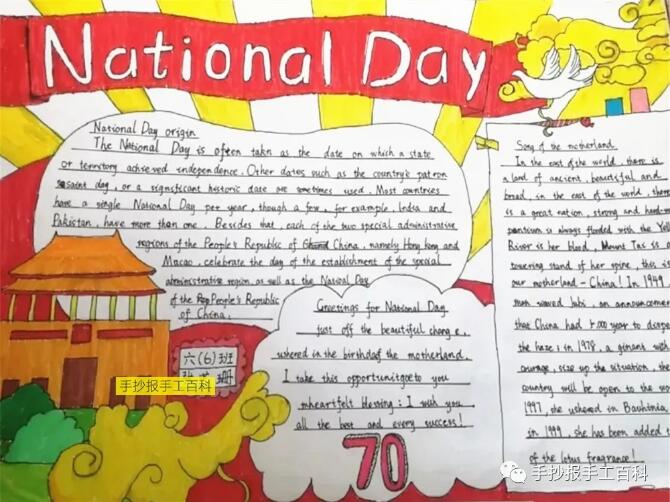 National Day
National Day origin
The National Day is often takn as the date on which a state
or territory achieved independence. Other dates such as the country's patron
saint day, or a significant historic date are sometimes used. Most countries
have a single National Day per year, though a few, for example, India and
Pakistan, have more than one. Besides that, each of the two special administrative
regions of the People's Republic of China, namely Hong kong and
Macao, celebrate the day of the establishment of the special
administrative region, as well as the National Day
of the People's Republic
of China.
Greetings for National Day
just off the beautiful chang e,
ushered in the birthday of the motherland.
I take this opportunitgoeto you
mheartfelt blessing: I wish you
all the best and every success!
70
六(6)班
手抄报手工百科
Song of the motherland
In the east of the world, there is
a land of ancient, beautiful and
broad, in the east of the world, there
is a great nation, strong and hardw
is always flooded with the Yell
River is her blood, Mount Tas is
towering stand of her spine, this is
our motherland - China! In 1949,
man waved labi, an announcemen
that China had year to
the haze; in 1978, a ginant with
courage, size up the situation, the
country will be open to the wor
1997, she ushered in Bauhinia
in 1999, she has been added t
of the lotus fragrance!
手抄报手工百科